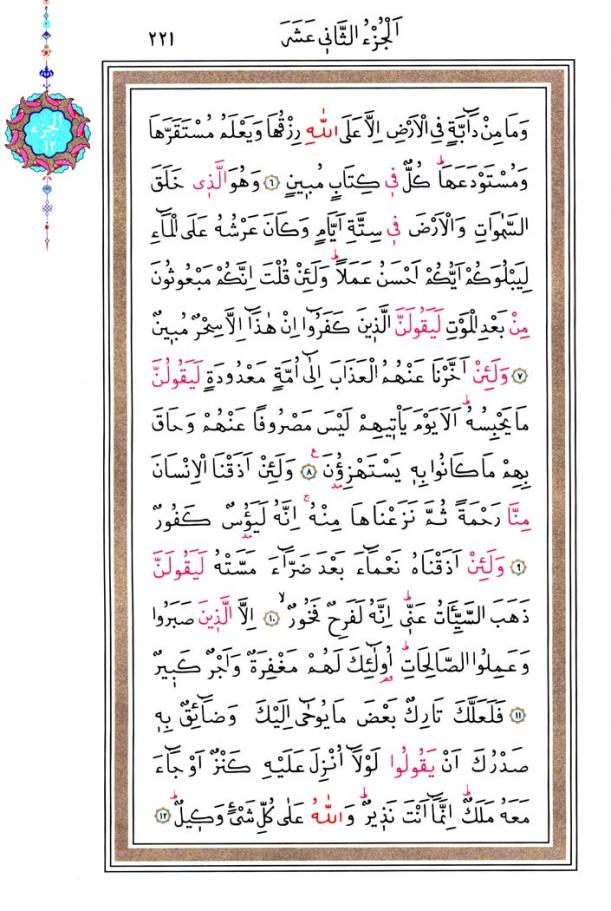 اَلْجُزْءُ الثَّانٖي عَشَرَ
٢٢١
الجزء
١٢
وَمَا مِنْ دَٓابَّةٍ فِي الْاَرْضِ اِلَّا عَلَى اللّٰهِ رِزْقُهَا وَيَعْلَمُ مُسْتَقَرَّهَا
وَمُسْتَوْدَعَهَاۜ كُلٌّ فٖي كِتَابٍ مُبٖينٍ ﴿٦﴾ وَهُوَ الَّذٖي خَلَقَ
السَّمٰوَاتِ وَالْاَرْضَ فٖي سِتَّةِ اَيَّامٍ وَكَانَ عَرْشُهُ عَلَى الْمَٓاءِ
لِيَبْلُوَكُمْ اَيُّكُمْ اَحْسَنُ عَمَلاًۜ وَلَئِنْ قُلْتَ اِنَّكُمْ مَبْعُوثُونَ
مِنْ بَعْدِ الْمَوْتِ لَيَقُولَنَّ الَّذٖينَ كَفَرُٓوا اِنْ هٰذَٓا اِلَّا سِحْرٌ مُبٖينٌ
﴿٧﴾ وَلَئِنْ اَخَّرْنَا عَنْهُمُ الْعَذَابَ اِلٰٓى اُمَّةٍ مَعْدُودَةٍ لَيَقُولُنَّ
مَا يَحْبِسُهُۜ اَلَا يَوْمَ يَأْتٖيهِمْ لَيْسَ مَصْرُوفًا عَنْهُمْ وَحَاقَ
بِهِمْ مَا كَانُوا بِهٖ يَسْتَهْزِؤُنَ ﴿٨﴾ وَلَئِنْ اَذَقْنَا الْاِنْسَانَ
مِنَّا رَحْمَةً ثُمَّ نَزَعْنَاهَا مِنْهُۚ اِنَّهُ لَيَؤُسٌ كَفُورٌ
﴿٩﴾ وَلَئِنْ اَذَقْنَاهُ نَعْمَٓاءَ بَعْدَ ضَرَّٓاءَ مَسَّتْهُ لَيَقُولَنَّ
ذَهَبَ السَّيِّئَاتُ عَنّٖيۜ اِنَّهُ لَفَرِحٌ فَخُورٌۙ ﴿١٠﴾ اِلَّا الَّذٖينَ صَبَرُوا
وَعَمِلُوا الصَّالِحَاتِۜ اُو۬لٰٓئِكَ لَهُمْ مَغْفِرَةٌ وَاَجْرٌ كَبٖيرٌ
﴿١١﴾ فَلَعَلَّكَ تَارِكٌ بَعْضَ مَا يُوحٰٓى اِلَيْكَ وَضَٓائِقٌ بِهٖ
صَدْرُكَ اَنْ يَقُولُوا لَوْلَٓا اُنْزِلَ عَلَيْهِ كَنْزٌ اَوْ جَٓاءَ
مَعَهُ مَلَكٌۜ اِنَّمَٓا اَنْتَ نَذٖيرٌۜ وَاللّٰهُ عَلٰى كُلِّ شَيْءٍ وَكٖيلٌۜ ﴿١٢﴾